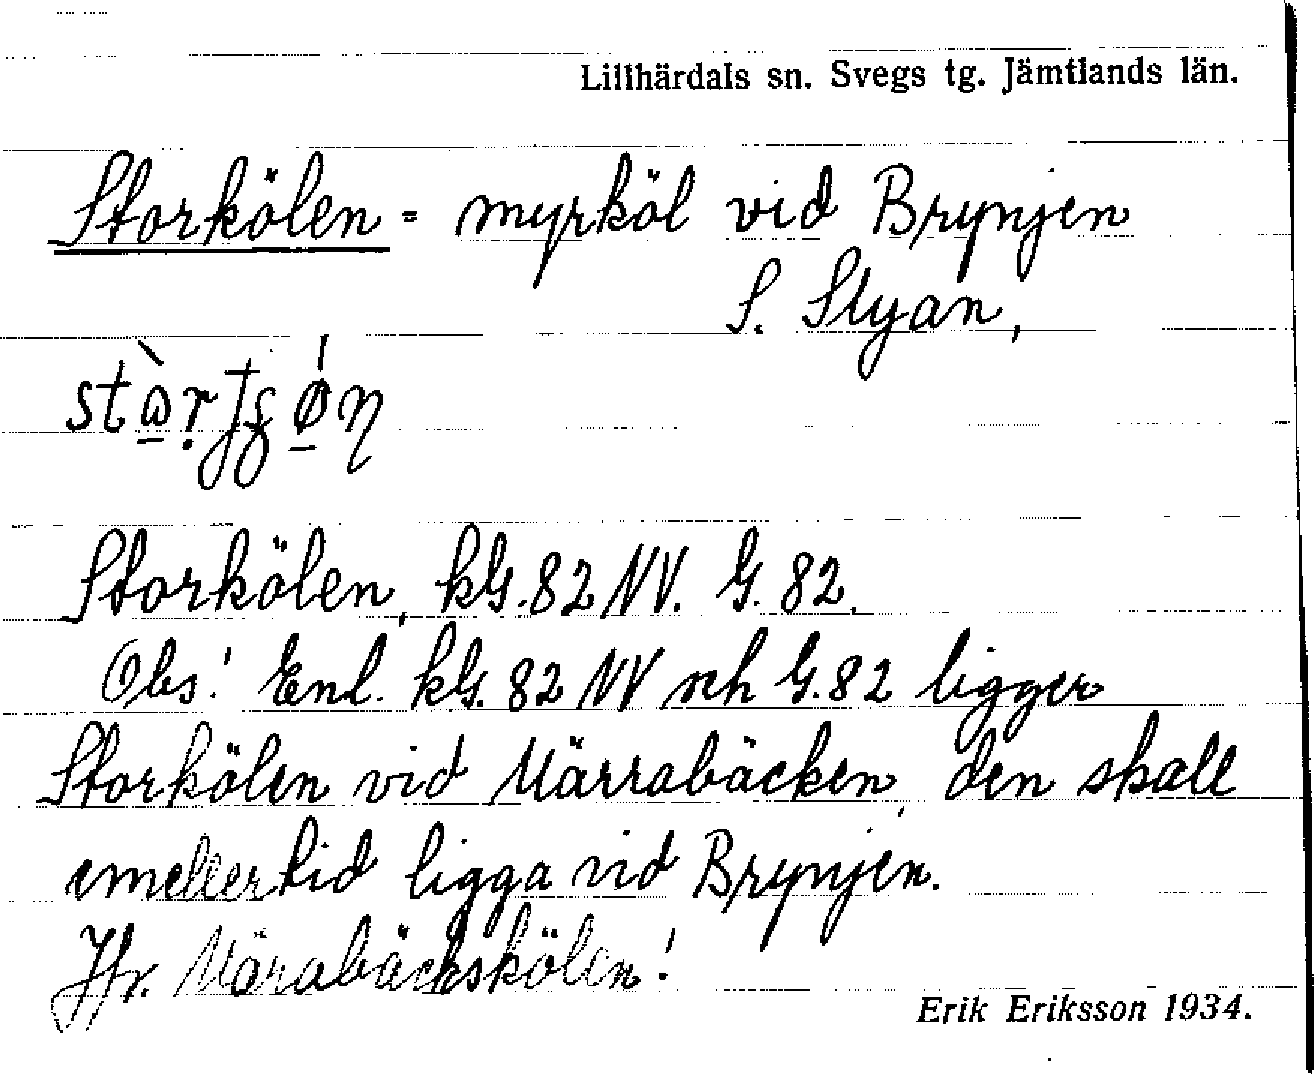 Lillhärdals sn. Svegs tg. Jämtlands län.
Storkölen = myrköl vid Brynjen
S. Slyan,
Storkölen, kG.82 NV. G. 82.
Obs! Enl. kG. 82 NV och G.82 ligger
Storkölen vid Märrabäcken, den skall
emellertid ligga vid Brynjen.
Jfr. Märabäckskölen!
Erik Eriksson 1934.